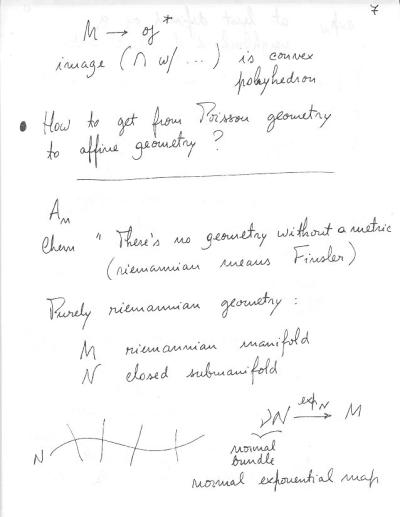 7
M → g*
image (∩ w/ ...) is convex
polyhedron
• How to get from Poisson geometry
to affine geometry ?
Chern " There's no geometry without a metric
(riemannian means Finsler)
Purely riemannian geometry :
M riemannian manifold
N closed submanifold
νN exp_N → M
N
normal
bundle
normal exponential map